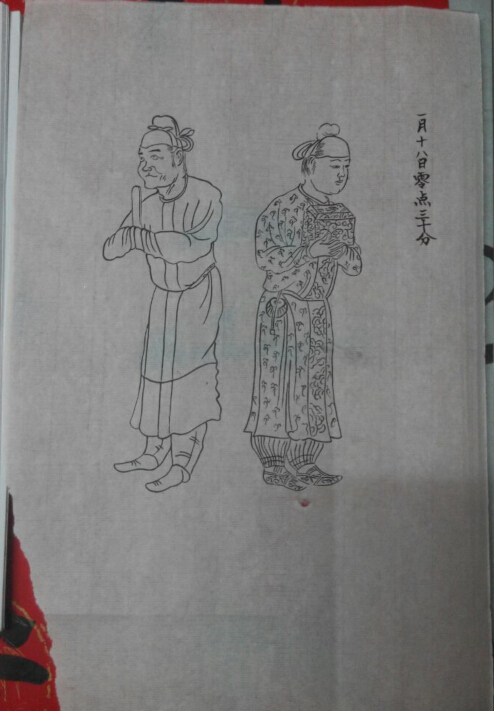 一月十八日零点三十分